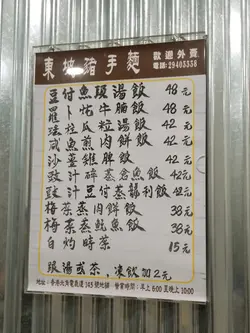 東坡豬手麵 歡迎外賣
電話:29403338
豆付魚頭湯飯 48元
羅卜炆牛腩飯 48元
粒湯飯 42元
咸魚煎肉餅飯 42元
沙薑雞脾飯 42元
豉汁碎蒸倉魚飯 42元
豉汁豆付蒸飯 42元
梅菜蒸肉餅飯 38元
梅菜蒸魷魚飯 38元
白灼時菜 15元
跟湯或茶,凍飲加2元
地址:香港北角電氣道143號地舖 營業時間:早上6:00至晚上10:00